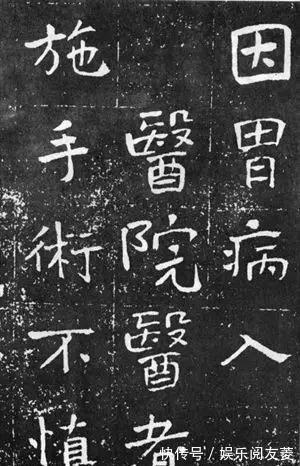 因胃病入
醫院醫者
施手術不慎
快传号/娱乐阅友菱